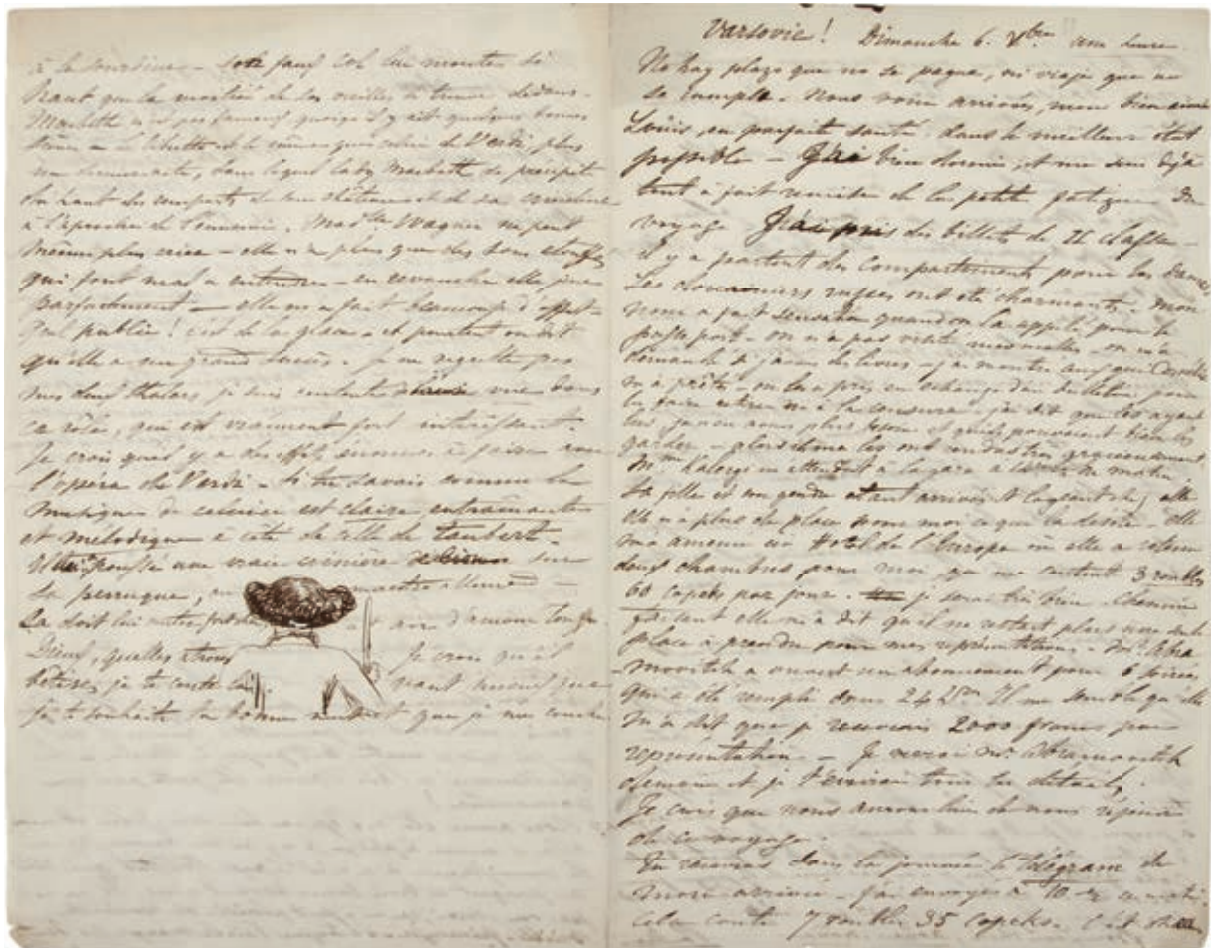 à la sourdine - son faux col lui montait si
haut que la moitié de ses oreilles se trouve dedans -
Macbeth n'est pas fameux quoiqu'il y ait quelques bonnes
choses - le libretto est le même que celui de Verdi, plus
un dénouement, dans lequel lady Macbeth se précipite
du haut des remparts de son château
à l'approche de l'ennemi. Mad. Wagner ne peut
même plus crier - elle n'a plus que des sons étouffés
qui font mal à entendre - en revanche elle joue
parfaitement - elle m'a fait beaucoup d'effet -
Quel public ! c'est de la glace - et pourtant on dit
qu'elle a un grand succès. je ne regrette pas
mes deux thalers, je suis contente vue dans
ce rôle, qui est vraiment fort intéressant.
Je crois qu'il y a des effets énormes à faire avec
l'opéra de Verdi - Si tu savais comme la
musique de ce dernier est claire entrainante
et mélodique à côté de celle de Taubert -
une vraie crinière sur
sa perruque, allemand -
Ça doit lui air d'amour
Dieu, quelles Je crois qu'il
bêtises je te conte là vaut mieux que
je te souhaite la bonne nuit et que je me couche
Varsovie ! Dimanche 6. Xbre une heure
No hay plazo que no se pague, ni viaje que no
se cumpla - Nous voici arrivées, mon bien aimé
Louis, en parfaite santé dans le meilleur état
possible - J'ai bien dormi, et me suis déjà
tout à fait remise de la petite fatigue du
voyage J'ai pris des billets de II classe -
il y a partout des compartiments pour les dames
Les douaniers russes ont été charmants - mon
nom a fait sensation quand on l'a appelé pour le
passeport - on n'a pas visité mes malles - on m'a
demandé si j'avais des livres - j'ai montré ceux que
m'a prêtés - on les a pris en échange d'un bulletin pour
les faire retirer à la censure - j'ai dit que les ayant
lus je n'en avais plus besoin et qu'ils pouvaient bien les
garder - plus ils me les ont rendus très gracieusement
Mme Kalergi m'attendait à la gare à du matin
Sa fille et son gendre étant arrivés chez elle
elle n'a plus de place pour moi ce que la désole - elle
m'a amenée à l'Hotel de l'Europe où elle a retenu
deux chambres pour moi qui me coutent 3 roubles
60 copeks par jour. je serai très bien. Chemin
faisant elle m'a dit qu'il ne restait plus une seule
place à prendre pour mes représentations - Mr. Abra
-movitch a ouvert un abonnement pour 6 soirées
qui a été rempli dans Il me semble qu'elle
m'a dit que je recevrais 2000 francs par
représentation. - Je verrai Mr. Abramovitch
demain et je t'écrirai tous les détails.
Je crois que nous aurons lieu de nous réjouir
de ce voyage.
Tu recevras dans la journée le télégrame de
mon arrivée - j'ai envoyé à 10 h ce matin
cela coute 7 roubles 35 copeks. C'est cher